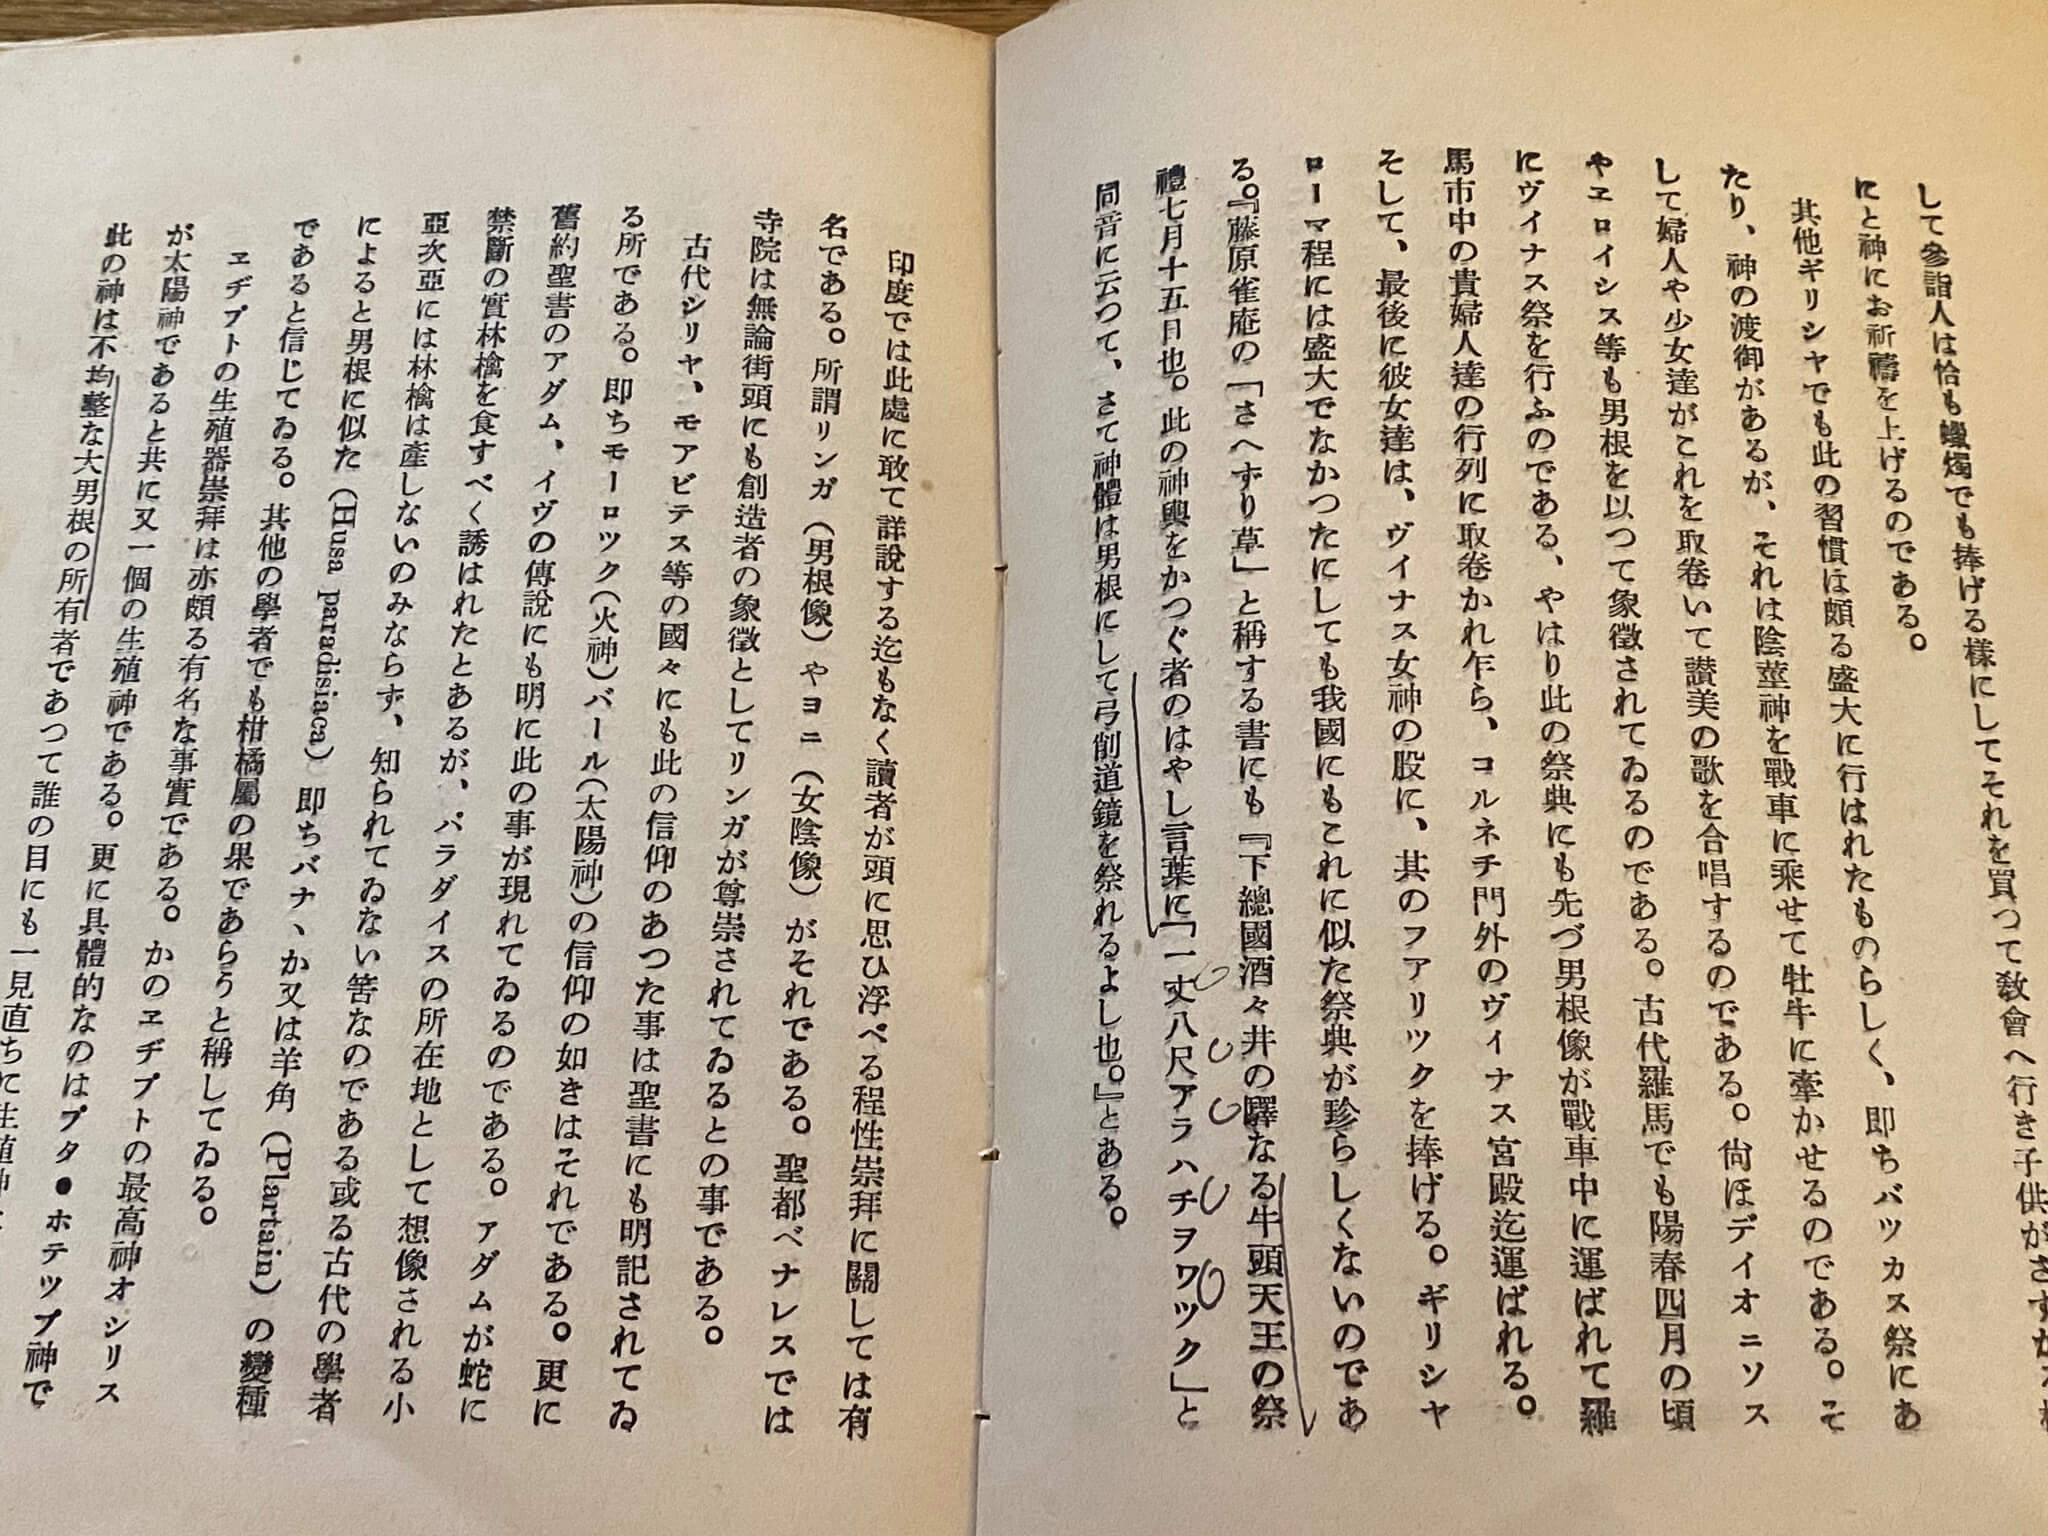 して參詣人は恰も蠟燭でも捧げる樣にしてそれを買つて敎會へ行き子供がさずかる
にと神にお祈禱を上げるのである。
其他ギリシヤでも此の習慣は頗る盛大に行はれたものらしく、即ちバツカス祭にあ
たり、神の渡御があるが、それは陰莖神を戰車に乘せて牡牛に牽かせるのである。そ
して婦人や少女達がこれを取卷いて讃美の歌を合唱するのである。尙ほデイオニソス
やヱロイシス等も男根を以つて象徴されてゐるのである。古代羅馬でも陽春四月の頃
にヴイナス祭を行ふのである、やはり此の祭典にも先づ男根像が戰車中に運ばれて羅
馬市中の貴婦人達の行列に取卷かれ乍ら、コルネチ門外のヴイナス宮殿迄運ばれる。
そして、最後に彼女達は、ヴイナス女神の股に、其のフアリツクを捧げる。ギリシヤ
ローマ程には盛大でなかつたにしても我國にもこれに似た祭典が珍らしくないのであ
る。『藤原雀庵の「さへずり草」と稱する書にも『下總國酒々井の驛なる牛頭天王の祭
禮七月十五日也。此の神輿をかつぐ者のはやし言葉に「一丈八尺アラハチヲワツク」と
同音に云つて、さて神體は男根にして弓削道鏡を祭れるよし也。』とある。
印度では此處に敢て詳說する迄もなく讀者が頭に思ひ浮べる程性崇拜に關しては有
名である。所謂リンガ（男根像）やヨニ（女陰像）がそれである。聖都ベナレスでは
寺院は無論街頭にも創造者の象徴としてリンガが尊崇されてゐるとの事である。
古代シリヤ、モアビテス等の國々にも此の信仰のあつた事は聖書にも明記されてゐ
る所である。即ちモーロツク（火神）バール（太陽神）の信仰の如きはそれである。更に
舊約聖書のアダム、イヴの傳說にも明に此の事が現れてゐるのである。アダムが蛇に
禁斷の實林檎を食すべく誘はれたとあるが、パラダイスの所在地として想像される小
亞次亞には林檎は產しないのみならず、知られてゐない筈なのである或る古代の學者
によると男根に似た（Husa paradisiaca）即ちバナヽか又は羊角（Plartain）の變種
であると信じてゐる。其他の學者でも柑橘屬の果であらうと稱してゐる。
ヱヂプトの生殖器崇拜は亦頗る有名な事實である。かのヱヂプトの最高神オシリス
が太陽神であると共に又一個の生殖神である。更に具體的なのはプタ●ホテツプ神で
此の神は不均整な大男根の所有者であつて誰の目にも一見直ちに生殖神